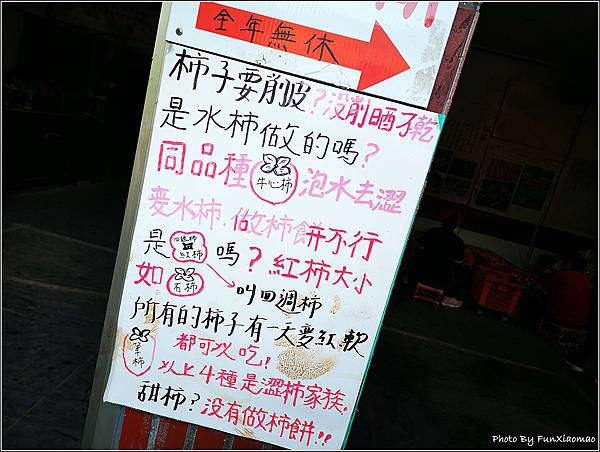 全年無休
柿子要削皮?沒削晒不乾
是水柿做的嗎?
同品種 牛心柿 泡水去澀
变水柿.做柿餅 併不行
是 紅柿 嗎?紅柿大小
如 石柿 叫四週柿
所有的柿子有一天变紅軟
筆柿 都可以吃!
以上4種是澀柿家族!
甜柿?沒有做柿餅!!
Photo By FunXiaomao